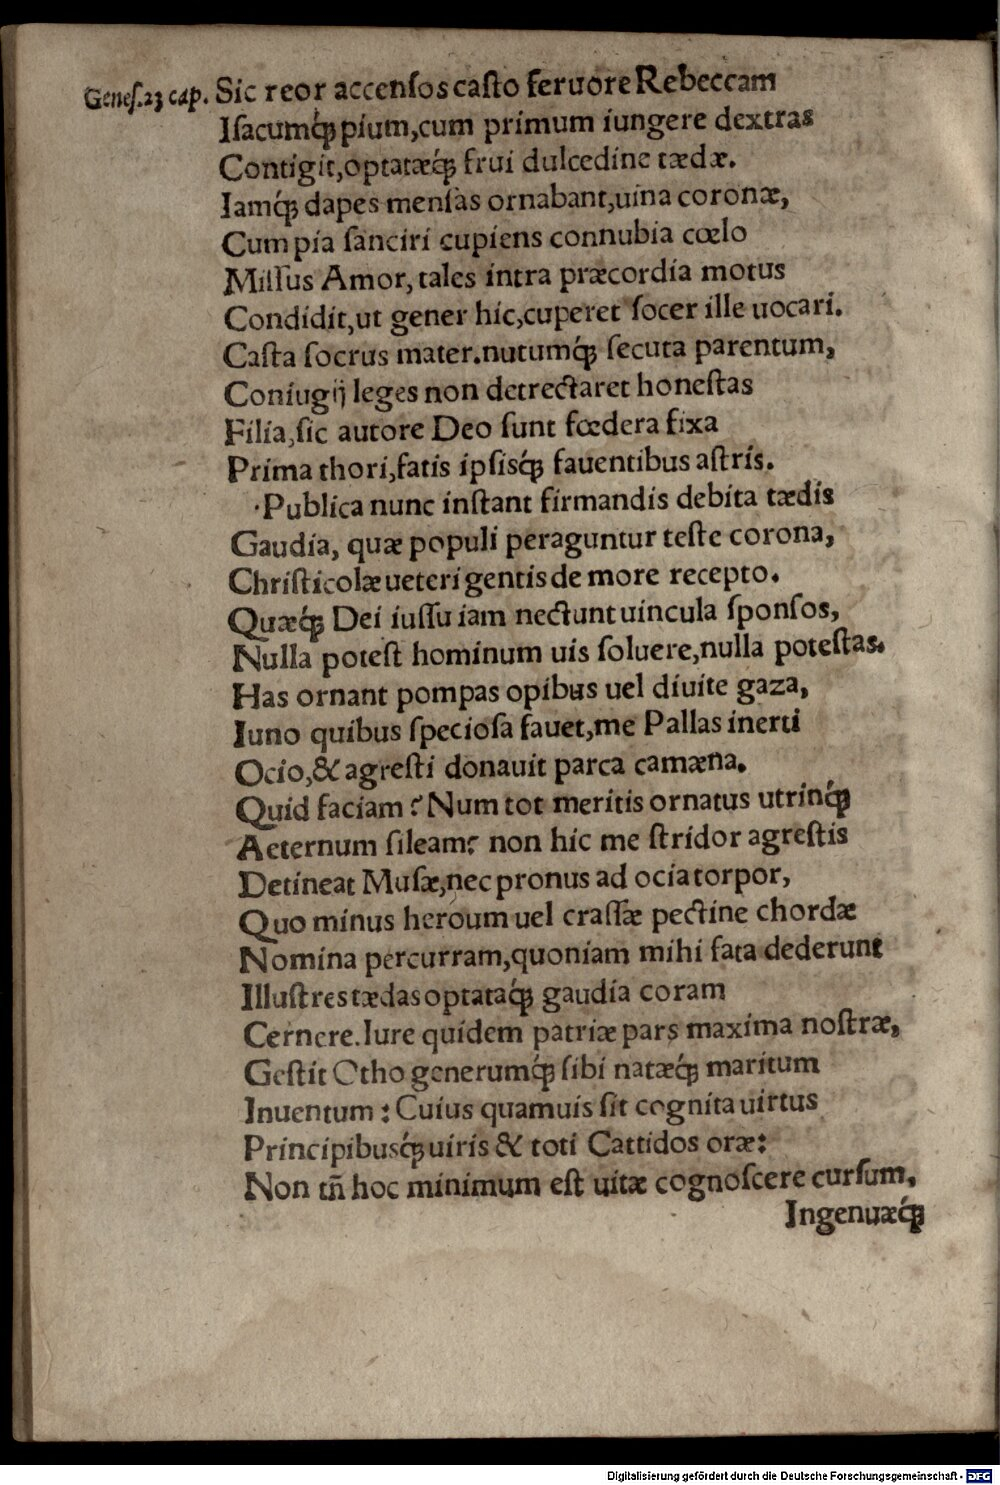 Geneſ. 23 cap. Sic reor accenſos caſto feruore Rebeccam
Iſacumq́ꝫ pium, cum primum iungere dextras
Contigit, optatæq́ꝫ frui dulcedine tædæ.
Iamq́ꝫ dapes menſas ornabant, uina coronæ,
Cum pia ſanciri cupiens connubia cœlo
Miſſus Amor, tales intra præcordia motus
Condidit, ut gener hic, cuperet ſocer ille uocari.
Caſta ſocrus mater. nutumq́ꝫ ſecuta parentum,
Coniugij leges non detrectaret honeſtas
Filia, ſic autore Deo ſunt fœdera fixa
Prima thori, fatis ipſisq́ꝫ fauentibus aſtris.
Publica nunc inſtant firmandis debita tædis
Gaudia, quæ populi peraguntur teſte corona,
Chriſticolæ ueteri gentis de more recepto.
Quæq́ꝫ Dei iuſſu iam nectunt uincula ſponſos,
Nulla poteſt hominum uis ſoluere, nulla poteſtas.
Has ornant pompas opibus uel diuite gaza,
Iuno quibus ſpecioſa fauet, me Pallas inerti
Ocio, & agreſti donauit parca camæna.
Quid faciam? Num tot meritis ornatus utrinq́ꝫ
Aeternum ſileam? non hic me ſtridor agreſtis
Detineat Muſæ, nec pronus ad ocia torpor,
Quo minus heroum uel craſſæ pectine chordæ
Nomina percurram, quoniam mihi fata dederunt
Illuſtres tædas optataq́ꝫ gaudia coram
Cernere. Iure quidem patriæ pars maxima noſtræ,
Geſtit Otho generumq́ꝫ ſibi natæq́ꝫ maritum
Inuentum: Cuius quamuis ſit cognita uirtus
Principibusq́ꝫ uiris & toti Cattidos oræ:
Non tñ hoc minimum eſt uitæ cognoſcere curſum,
Ingenuæq́ꝫ
Digitalisierung gefördert durch die Deutsche Forschungsgemeinschaft - DFG